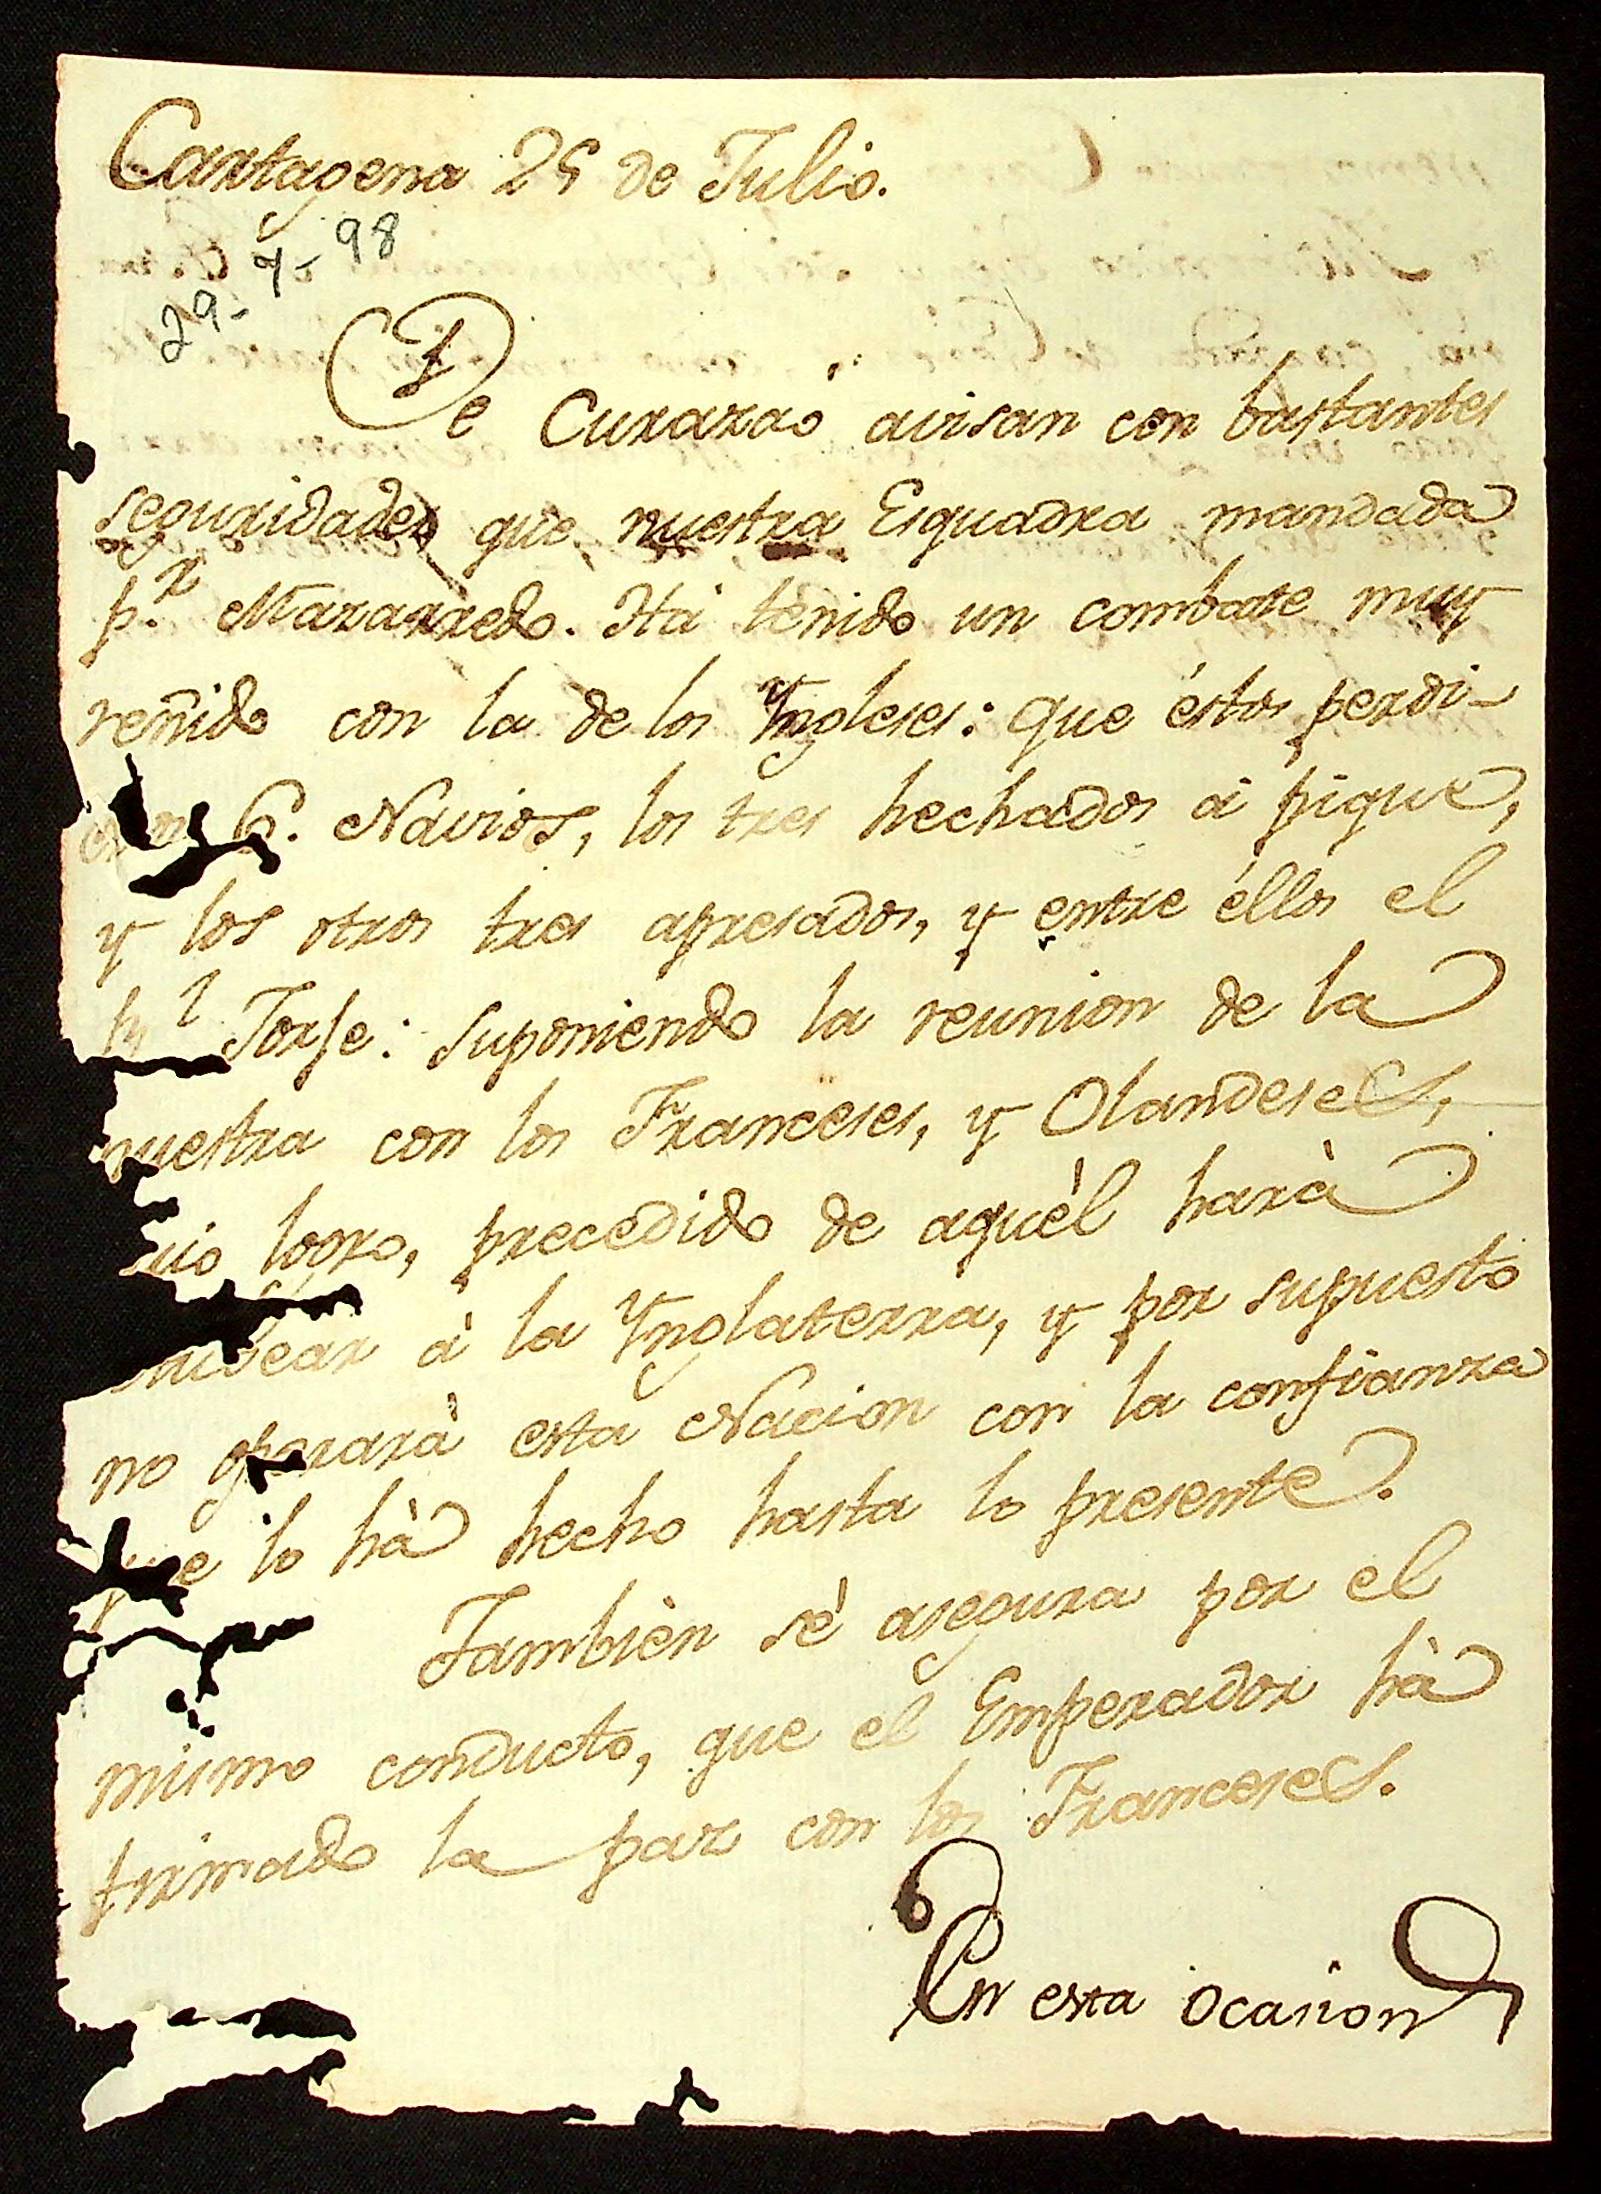 Cartagena 29 de Julio.
29-7-98
De Curazaó avisan con bastantes
seguridades que nuestra Esquadra mandada
p.r Mazarredo. Há tenido un combate muy
reñido con la de los Yngleses: que éstos perdi-
6. Navios, los tres hechados á pique,
y los otros tres apresados, y entre éllos el
Jorje: suponiendo la reunion de la
nuestra con los Franceses, y Olandeses,
logro, precedido de aquèl harà
à la Ynglaterra, y por supuesto
no operarà esta Nacion con la confianza
que lo hà hecho hasta lo presente.
Tambièn sè asegura por el
mismo conducto, que el Emperador hà
firmado la paz con los Franceses.
En esta ocasion